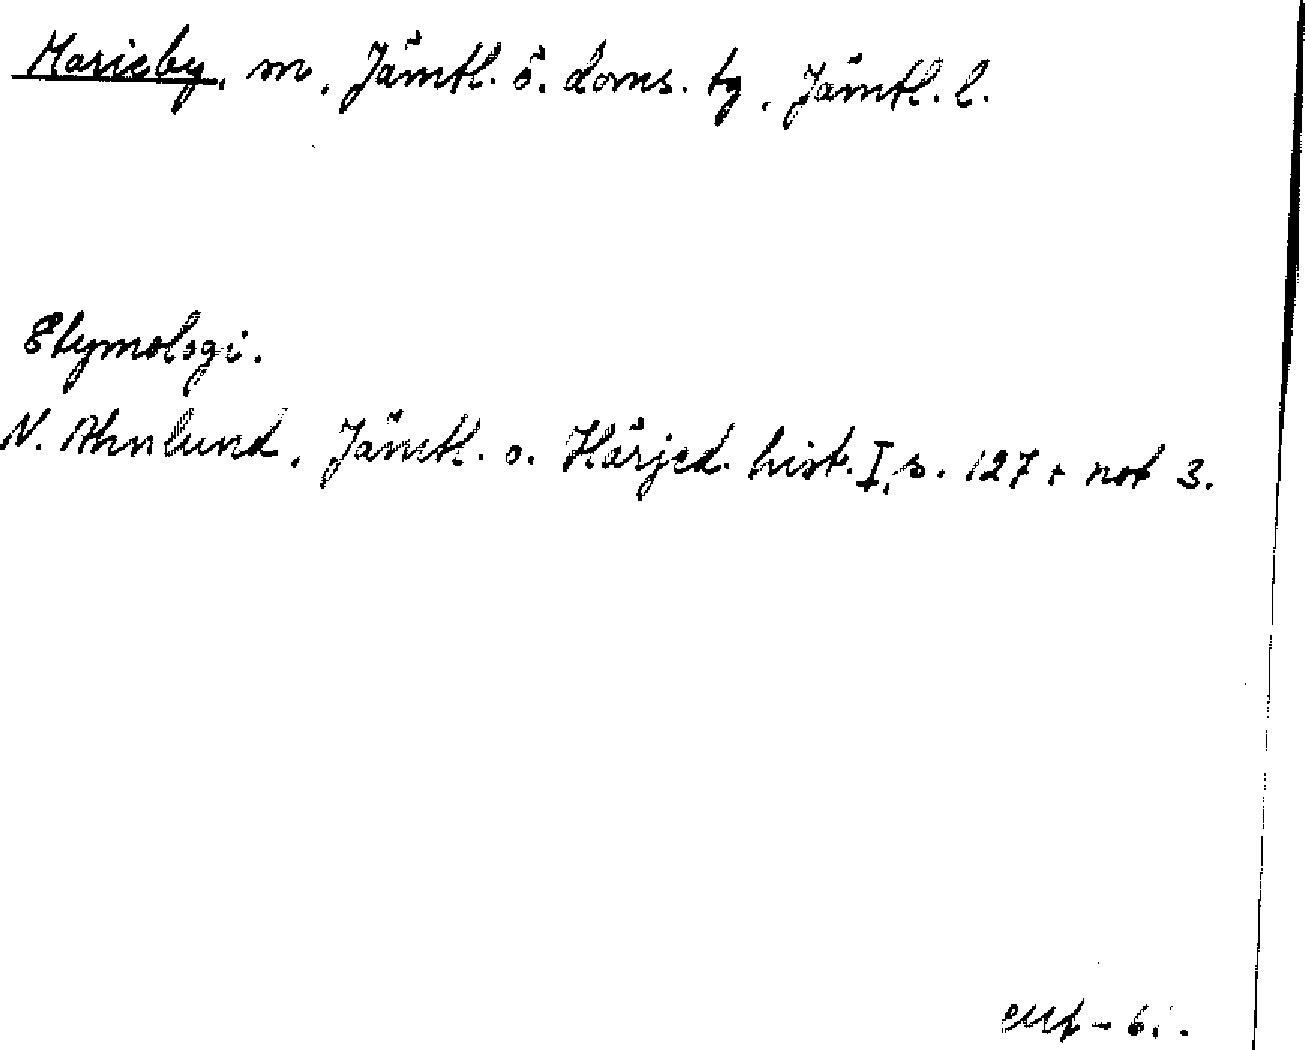 Marieby, m, Jämtl. ö. doms. tg, Jämtl. l.
Etymologi.
N. Ahnlund, Jämtl. o. Härjed. hist. I, s. 127 + not 3.